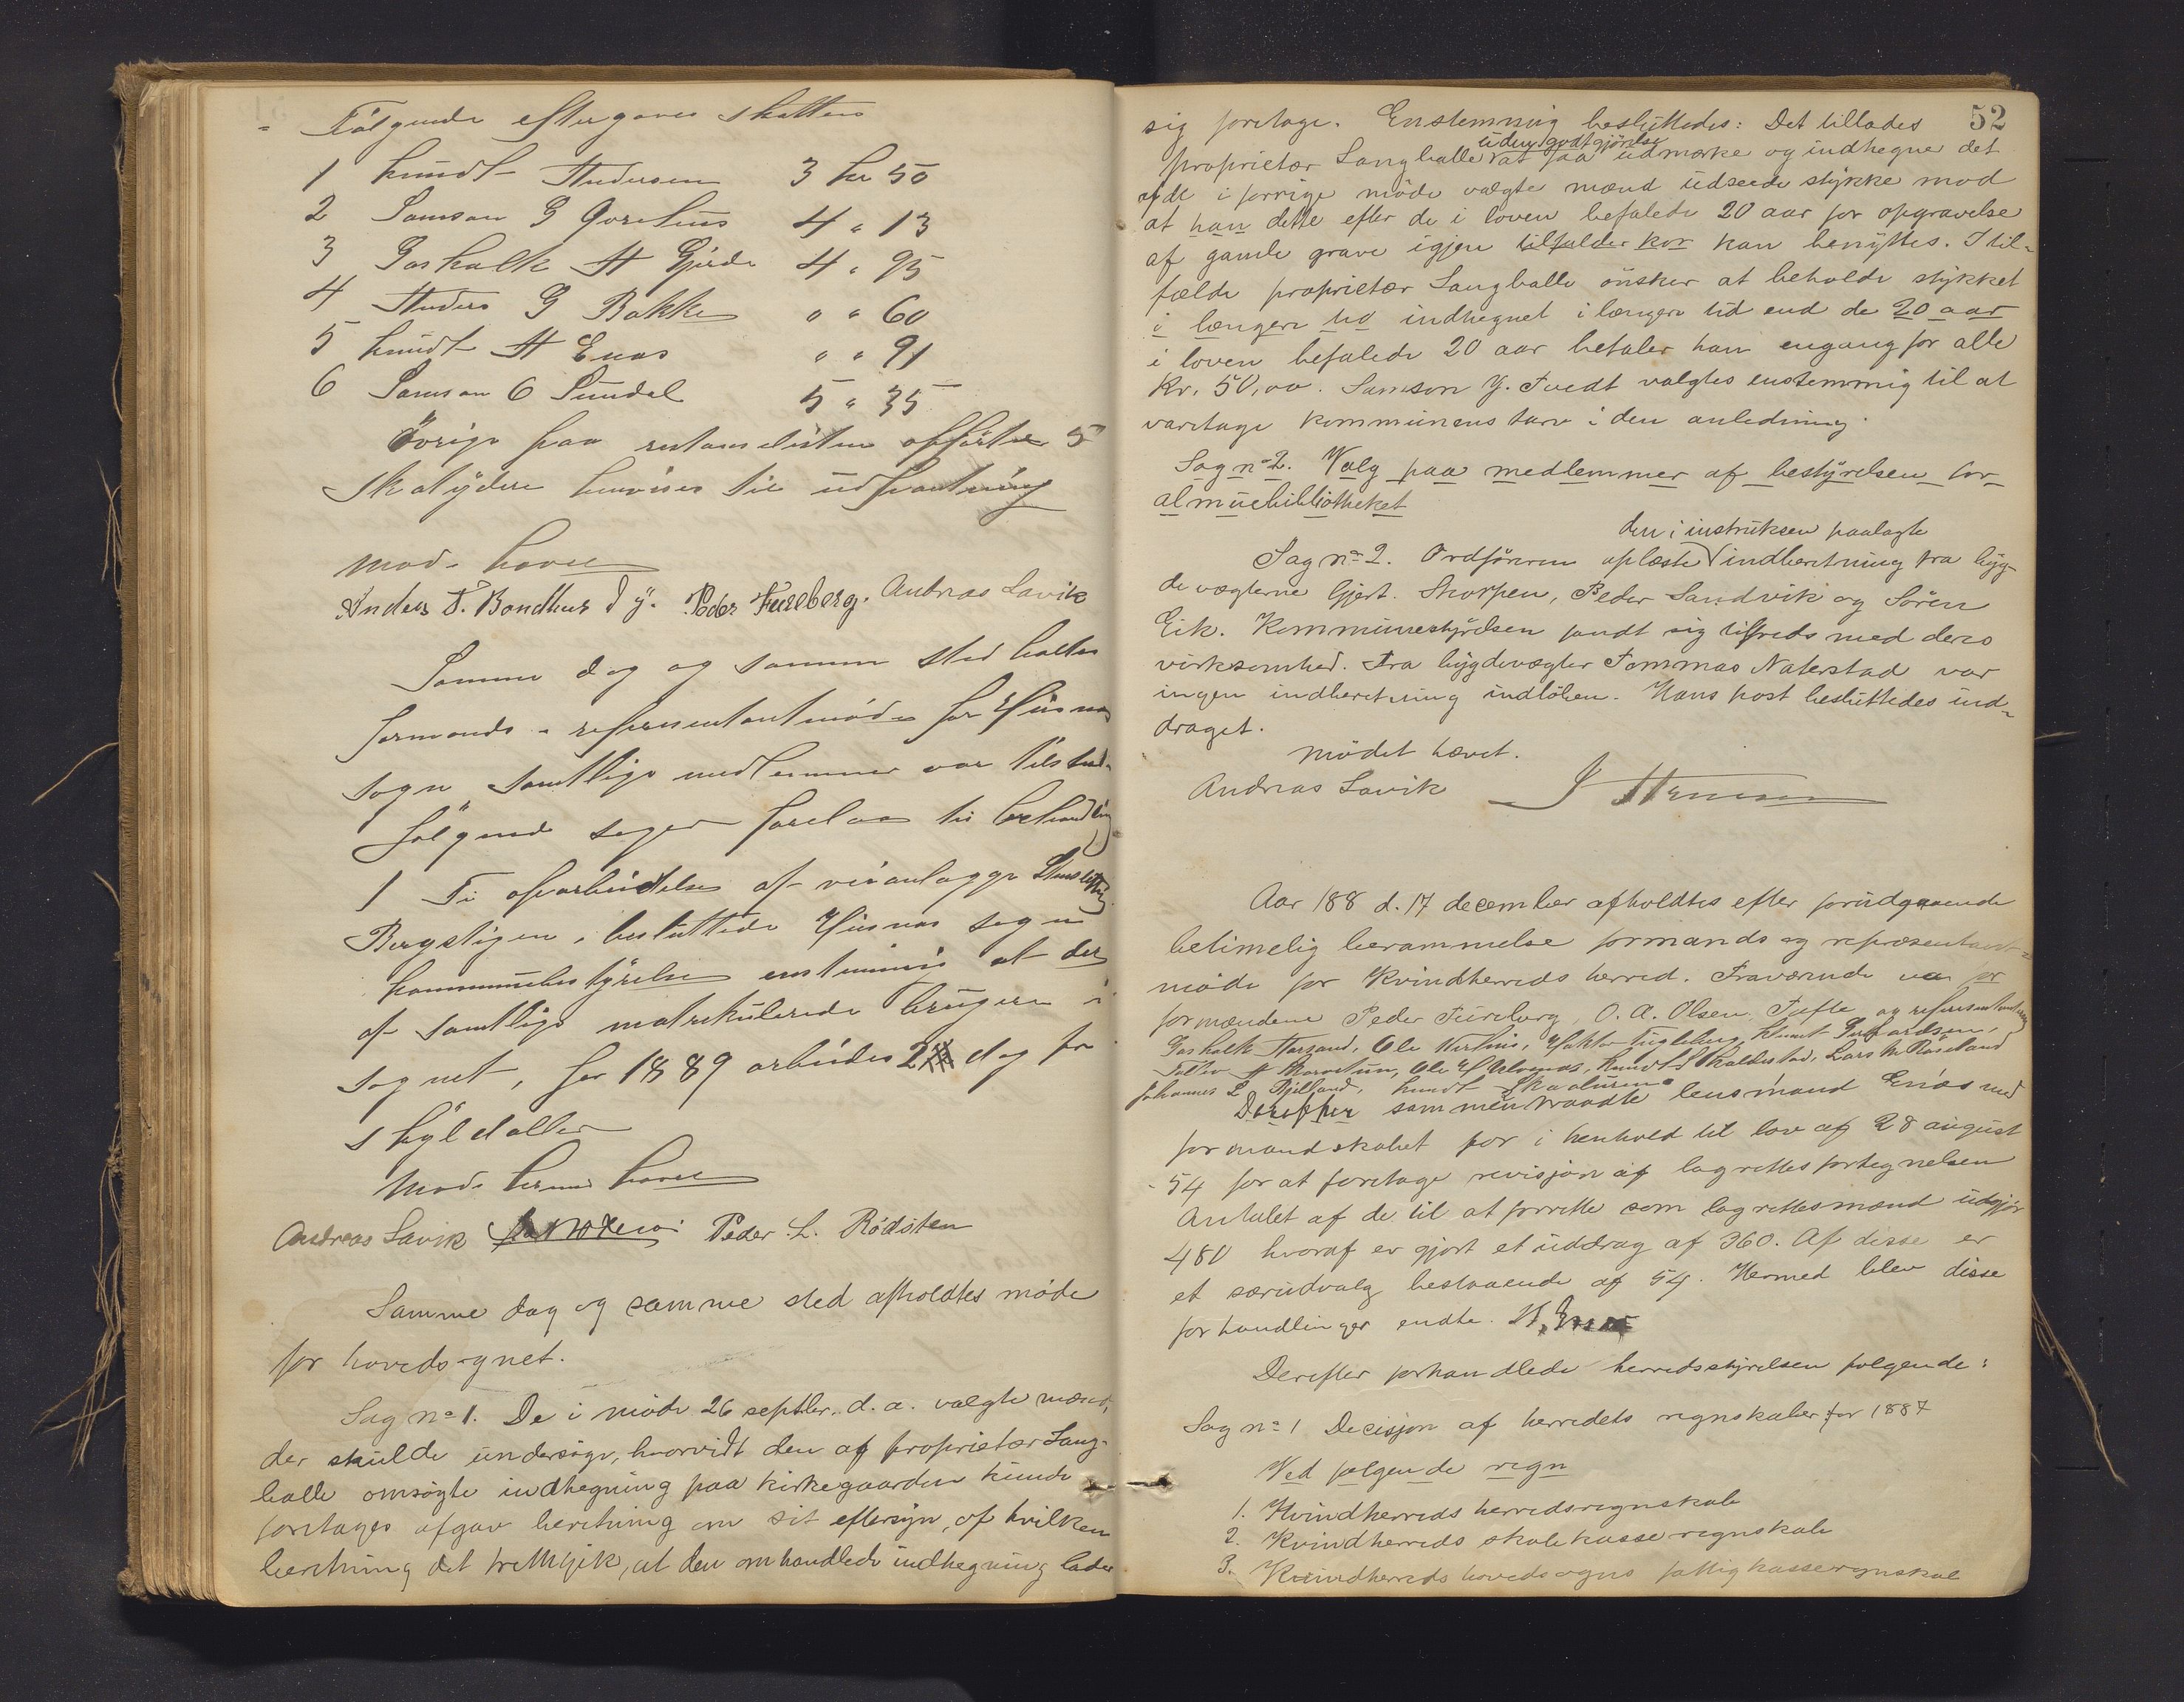 Følgende eftergaves skatten
1 Knudt Andersen 3 kr 50
2 Samson G 4 " 13
3 Goskalk A Gjerde 4 " 95
4 Anders G Bakke " " 60
5 Knudt A Enæs " " 91
6 Samson O Sundal 5 " 35
Övrige paa restanselisten opförte 5
skatydere henvises til udpantning
Möde hævet
Anders T. Bondhus d y. Peder Fureberg. Andreas Savik
Samme dag og samme sted holtes
formands - representantmöde for Husnæs
sogn samtlige medlemmer var tilstede
følgende sager forelaa til behandling
1 Ti oparbeidelse af veianlægge
Bergstigen, besluttede Husnæs sogns
kommunebestyrelse enstemmig at der
af samtlige matrikulerede brugere i
sognet, for 1889 arbeides 2 dag pr
skylddaller
Möde hermed hævet
Andreas Savik Peder L. Rödsten
Samme dag og samme sted afholdtes möde
for hovedsognet.
Sag no 1. De i möde 26 septbr. d. a. valgte mænd,
der skulde undersöge, hvorvidt den af proprietær Lang-
balle omsögte indhegning paa kirkegaarden kunde
foretages afgav beretning om sit eftersyn, af hvilken
beretning det fremgik, at den omhandlede indhegning lader
52
sig foretage. Enstemmig besluttedes: Det tillades
uden godtgjörelse
proprietær Langballe at paa udmærke og indhegne det
af de i forrige möde valgte mænd udseede stykke mod
at han dette efter de i loven befalede 20 aar for opgravelse
af gamle grave igjen tilfalder kor kan benyttes. I til-
fælde proprietær Langballe önsker at beholde stykket
i længere tid indhegnet i længere tid end de 20 aar
i loven befalede 20 aar betaler han engang for alle
Kr. 50,00. Samson G. Tvedt valgtes enstemmig til at
varetage kommunens tarv i den anledning.
Sag no 2. Valg paa medlemmer af bestyrelsen for
almuebibliotheket
den i instruksen paalagte
Sag no 2. Ordföreren oplæste indberetning fra byg-
devægterne Gjert Skorpen, Peder Sandvik og Sören
Eik. Kommunestyrelsen fandt sig tilfreds med deres
virksomhed. Fra bygdevægter Tommas Naterstad var
ingen indberetning indlöben. Hans post besluttedes ind-
draget.
Mödet hævet.
Andreas Savik
Aar 188 d. 17 december afholdtes efter forudgaaende
betimelig berammelse formands og repræsentant-
möde for Kvindherreds herred. Fraværende var for
formændene Peder Fureberg, O. A. Olsen Tufte og representanterne
Goskalk, Ole, Knut
Johannes L Kjelland, Knudt Skaaluren
Derefter sammentraadte lensmand Enæs med
formandskabet for i henhold til lov af 28 august
-54 for at foretage revisjon af lagrettesfortegnelsen
Antalet af de til at forrette som lagrettesmænd udgjör
480 hvoraf er gjort et uddrag af 360. Af disse er
et særudvalg bestaaende af 54. Hermed blev disse
forhandlinger endte. A. Enæs
Derefter forhandlede herredsstyrelsen følgende:
Sag no 1 Decisjon af herredets regnskaber for 1887
Ved følgende regn
1. Kvindherreds herredsregnskab
2. Kvindherreds skolekasseregnskab
3. Kvindherreds hovedsogns fattigkasseregnskab